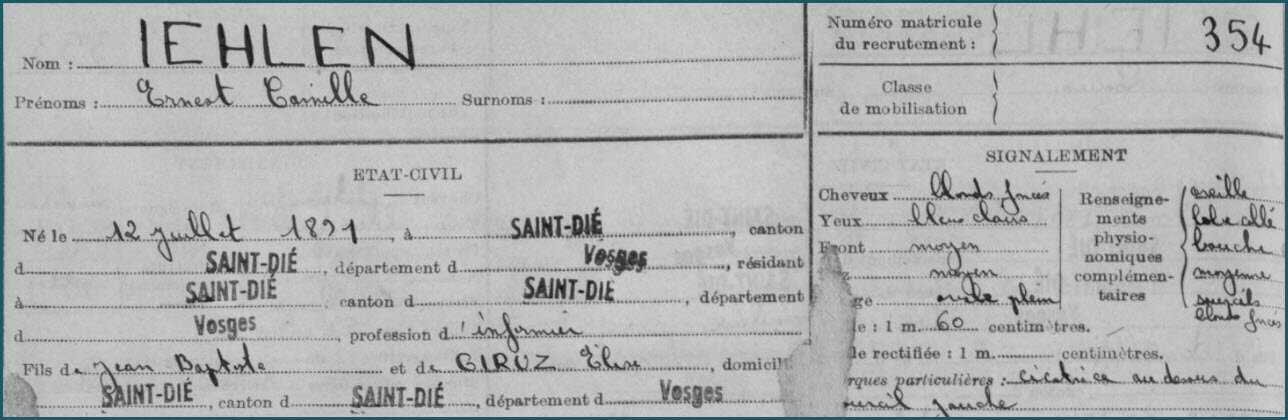 Nom : IEHLEN
Prénoms : Ernest Camille Surnoms :
ETAT-CIVIL
Né le 12 juillet 1891, à SAINT-DIÉ, canton
d SAINT-DIÉ, département d Vosges, résidant
à SAINT-DIÉ canton d SAINT-DIÉ, département
d Vosges, profession d'infirmier
Fils de Jean Baptiste et de GIRUZ Elise, domicil
SAINT-DIÉ, canton d SAINT-DIÉ, département d Vosges
Numéro matricule
du recrutement : 354
Classe
de mobilisation
SIGNALEMENT
Cheveux blonds foncés
Yeux bleus clairs
Front moyen
moyen
ge ovale plein
Renseigne-
ments
physio-
nomiques
complémen-
taires
oreille
lobe
bouche
moyenne
sourcils
blonds foncés
le : 1 m. 60 centimètres.
le rectifiée : 1 m. centimètres.
rques particulières : cicatrice au dessus du
sourcil gauche